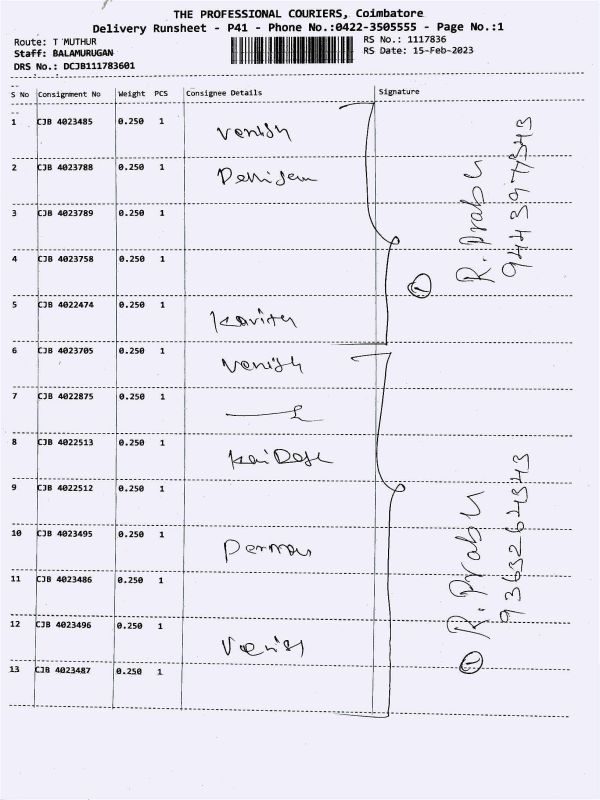 THE PROFESSIONAL COURIERS, Coimbatore
Delivery Runsheet - P41 - Phone No.:0422-3505555 - Page No.:1
Route: T MUTHUR
RS No.: 1117836
Staff: BALAMURUGAN
RS Date: 15-Feb-2023
DRS No.: DCJB111783601
S No Consignment No Weight PCS Consignee Details Signature
1 CJB 4023485 0.250 1 Venish
2 CJB 4023788 0.250 1
3 CJB 4023789 0.250 1
4 CJB 4023758 0.250 1
5 CJB 4022474 0.250 1 Kavitha
6 CJB 4023705 0.250 1 Venish
7 CJB 4022875 0.250 1
8 CJB 4022513 0.250 1
9 CJB 4022512 0.250 1
10 CJB 4023495 0.250 1
11 CJB 4023486 0.250 1
12 CJB 4023496 0.250 1 Venish
13 CJB 4023487 0.250 1
R. Prabu
1
R. Prabu
9363264343